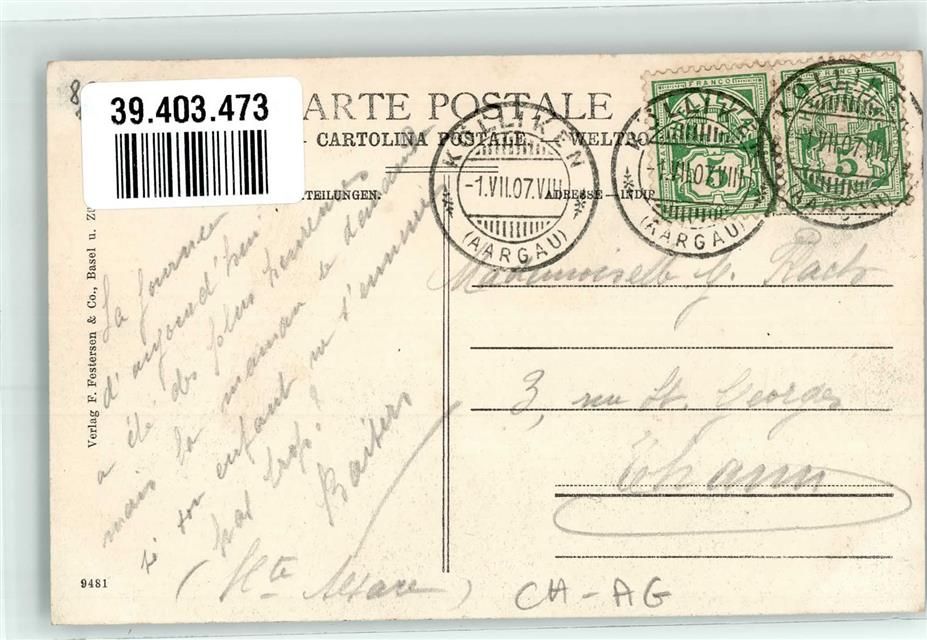 39.403.473
ARTE POSTALE
- CARTOLINA POSTALE. WELTPO
TEILUNGEN.
ADRESSE — INDIR
KÖLLIKEN
-1.VII.07.VIII
(AARGAU)
KÖLLIKEN
-1.VII.07.VIII
(AARGAU)
KÖLLIKEN
VII.07
FRANCO
5
FRANCO
5
La journée
d'aujourd'hui
a été des plus heureuses
mais la maman a demandé
si son enfant ne s'ennuie
pas trop?
Baisers
(Hte Alsace)
Mademoiselle G.
3, rue St. Georges
Thann
CH-AG
Verlag F. Festersen & Co., Basel u. Zü
9481